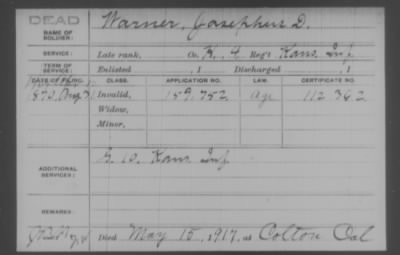 DEAD
NAME OF SOLDIER: Warner, Josephus D.
SERVICE: Late rank, Co. K, 4 Reg't Kans. Inf.
TERM OF SERVICE: Enlisted , 1 Discharged , 1
DATE OF FILING. CLASS. APPLICATION NO. LAW. CERTIFICATE NO.
1870, Aug. Invalid, 159,752 Age 112 362
Widow,
Minor,
ADDITIONAL SERVICES: G. 10. Kans. Inf.
REMARKS:
Died May 15, 1917, at Colton Cal